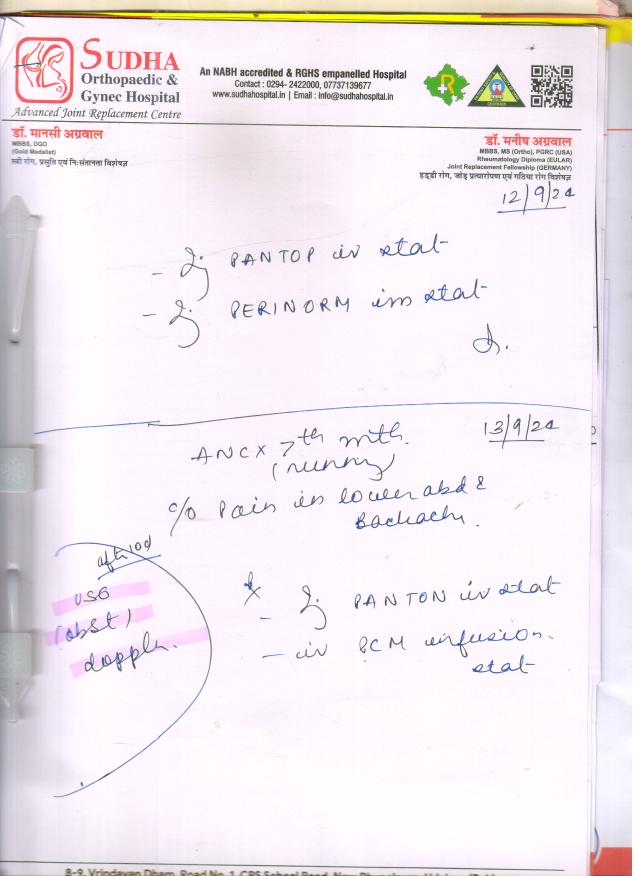 SUDHA
Orthopaedic &
Gynec Hospital
Advanced Joint Replacement Centre
An NABH accredited & RGHS empanelled Hospital
Contact : 0294- 2422000, 07737139677
www.sudhahospital.in | Email : info@sudhahospital.in
डॉ. मानसी अग्रवाल
MBBS, DGO
(Gold Medalist)
स्त्री रोग, प्रसुति एवं निःसंतानता विशेषज्ञ
डॉ. मनीष अग्रवाल
MBBS, MS (Ortho), PGRC (USA)
Rheumatology Diploma (EULAR)
Joint Replacement Fellowship (GERMANY)
हड्डी रोग, जोड़ प्रत्यारोपण एवं गठिया रोग विशेषज्ञ
12/9/24
- Inj PANTOP iv stat
- Inj PERINORM im stat
13/9/24
ANC x 7th mth.
(running)
c/o Pain in lower abd &
Backache.
after 10d
USG
(obst)
doppler.
Rx
- Inj PANTON iv stat
- iv PCM infusion
stat
8-9, Vrindavan Dham, Road No. 1, CPS School Road, New